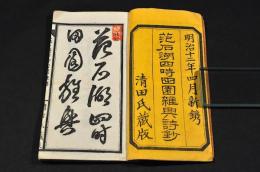 明治十二年四月新鐫
范石湖四時田園雜興詩鈔
清田氏藏版
范石湖四時
田園雜興